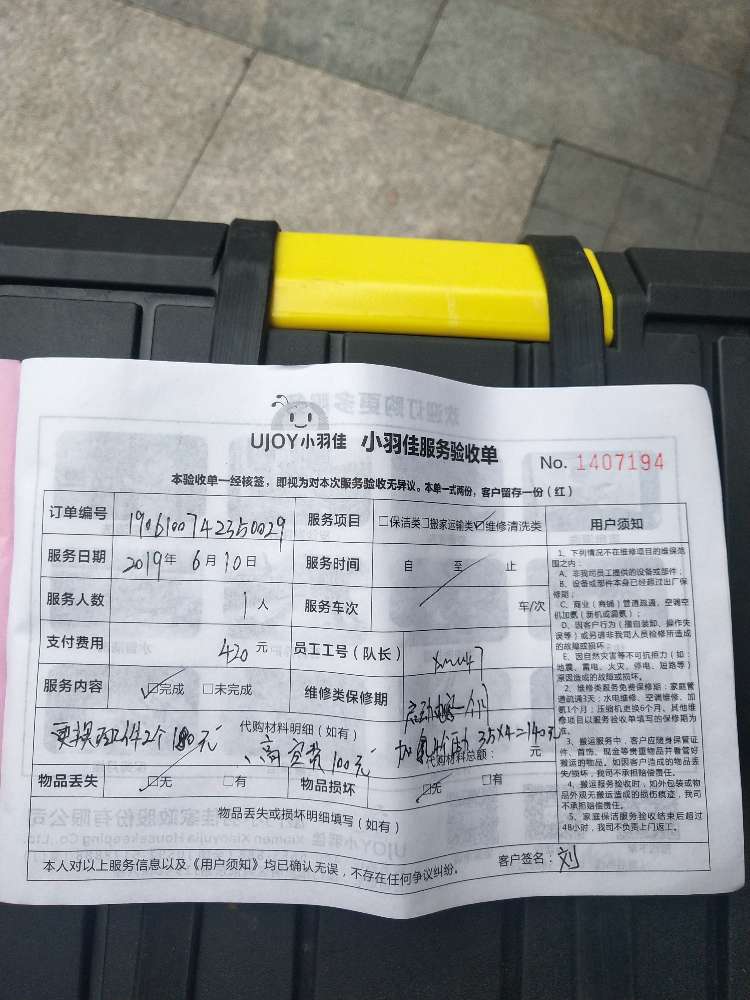 UJOY小羽佳 小羽佳服务验收单 No. 1407194
本验收单一经核签，即视为对本次服务验收无异议。本单一式两份，客户留存一份（红）
订单编号 1906100742350029 服务项目 □保洁类□搬家运输类☑维修清洗类 用户须知
服务日期 2019年 6月10日 服务时间 自 至 止
服务人数 1人 服务车次 车/次
支付费用 420元 员工工号（队长） xmw47
服务内容 ☑完成 □未完成 维修类保修期
代购材料明细（如有）
更换 配件2个180元 高空费100元
35×4=140元
代购材料总额： 元
物品丢失 ☑无 □有 物品损坏 ☑无 □有
物品丢失或损坏明细填写（如有）
本人对以上服务信息以及《用户须知》均已确认无误，不存在任何争议纠纷。 客户签名：刘
1、下列情况不在维修项目的维保范
围之内：
A、非我司员工提供的设备或部件；
B、设备或部件本身已经超过出厂保
修期；
C、商业（商铺）管道疏通，空调空
机加氟（新机或漏氟）；
D、因客户行为（擅自装卸、操作失
误等）或另请非我司人员检修所造成
的故障或损坏；
E、因自然灾害等不可抗拒力（如：
地震、雷电、火灾、停电、短路等）
原因造成的故障或损坏。
2、维修类服务免费保修期：家庭管
道疏通3天；水电维修、空调维修、加
氟1个月；压缩机更换6个月、其他维
修项目以服务验收单填写的保修期为
准。
3、搬运服务中，客户应随身保管证
件、首饰、现金等贵重物品并看管好
搬运的物品。如因客户造成的物品丢
失/损坏，我司不承担赔偿责任。
4、搬运服务验收时，如外包装或物
品外观无搬运造成的损伤痕迹，我司
不承担赔偿责任。
5、家庭保洁服务验收结束后超过
48小时，我司不负责上门返工。